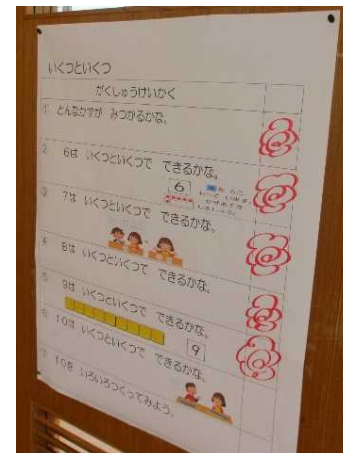 いくつといくつ
がくしゅうけいかく
① どんなかずが みつかるかな。
② 6は いくつといくつで できるかな。
6
③ 7は いくつといくつで できるかな。
④ 8は いくつといくつで できるかな。
⑤ 9は いくつといくつで できるかな。
9
⑥ 10は いくつといくつで できるかな。
⑦ 10を いろいろつくってみよう。